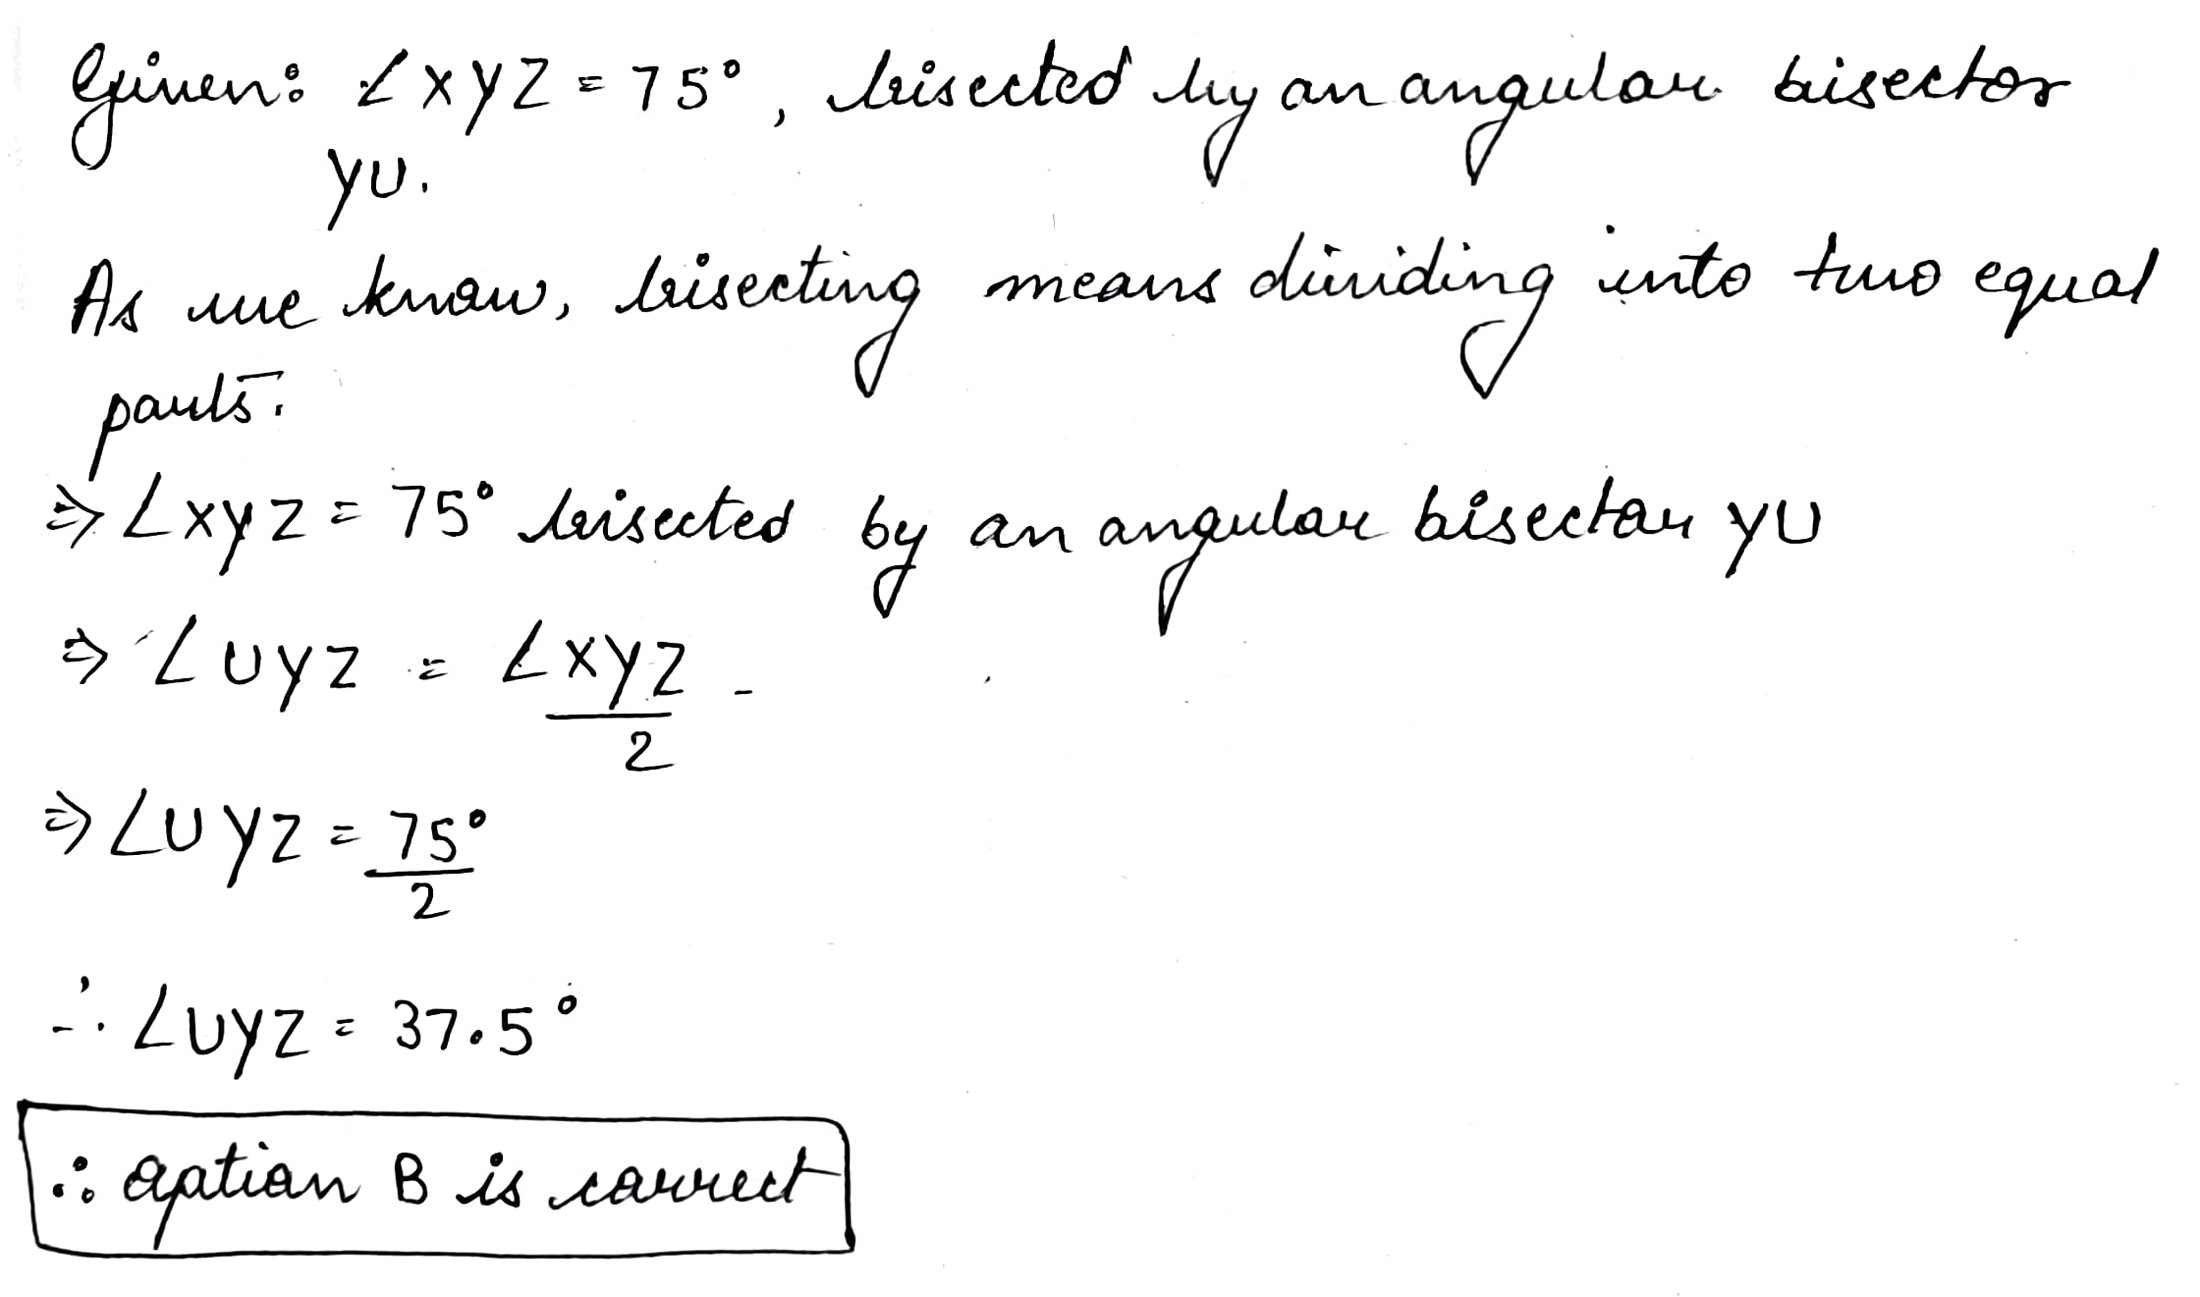 Given: ∠XYZ = 75°, bisected by an angular bisector
YU.
As we know, bisecting means dividing into two equal
parts.
⇒ ∠XYZ = 75° bisected by an angular bisector YU
⇒ ∠UYZ = ∠XYZ
2
⇒ ∠UYZ = 75°
2
∴ ∠UYZ = 37.5°
∴ option B is correct